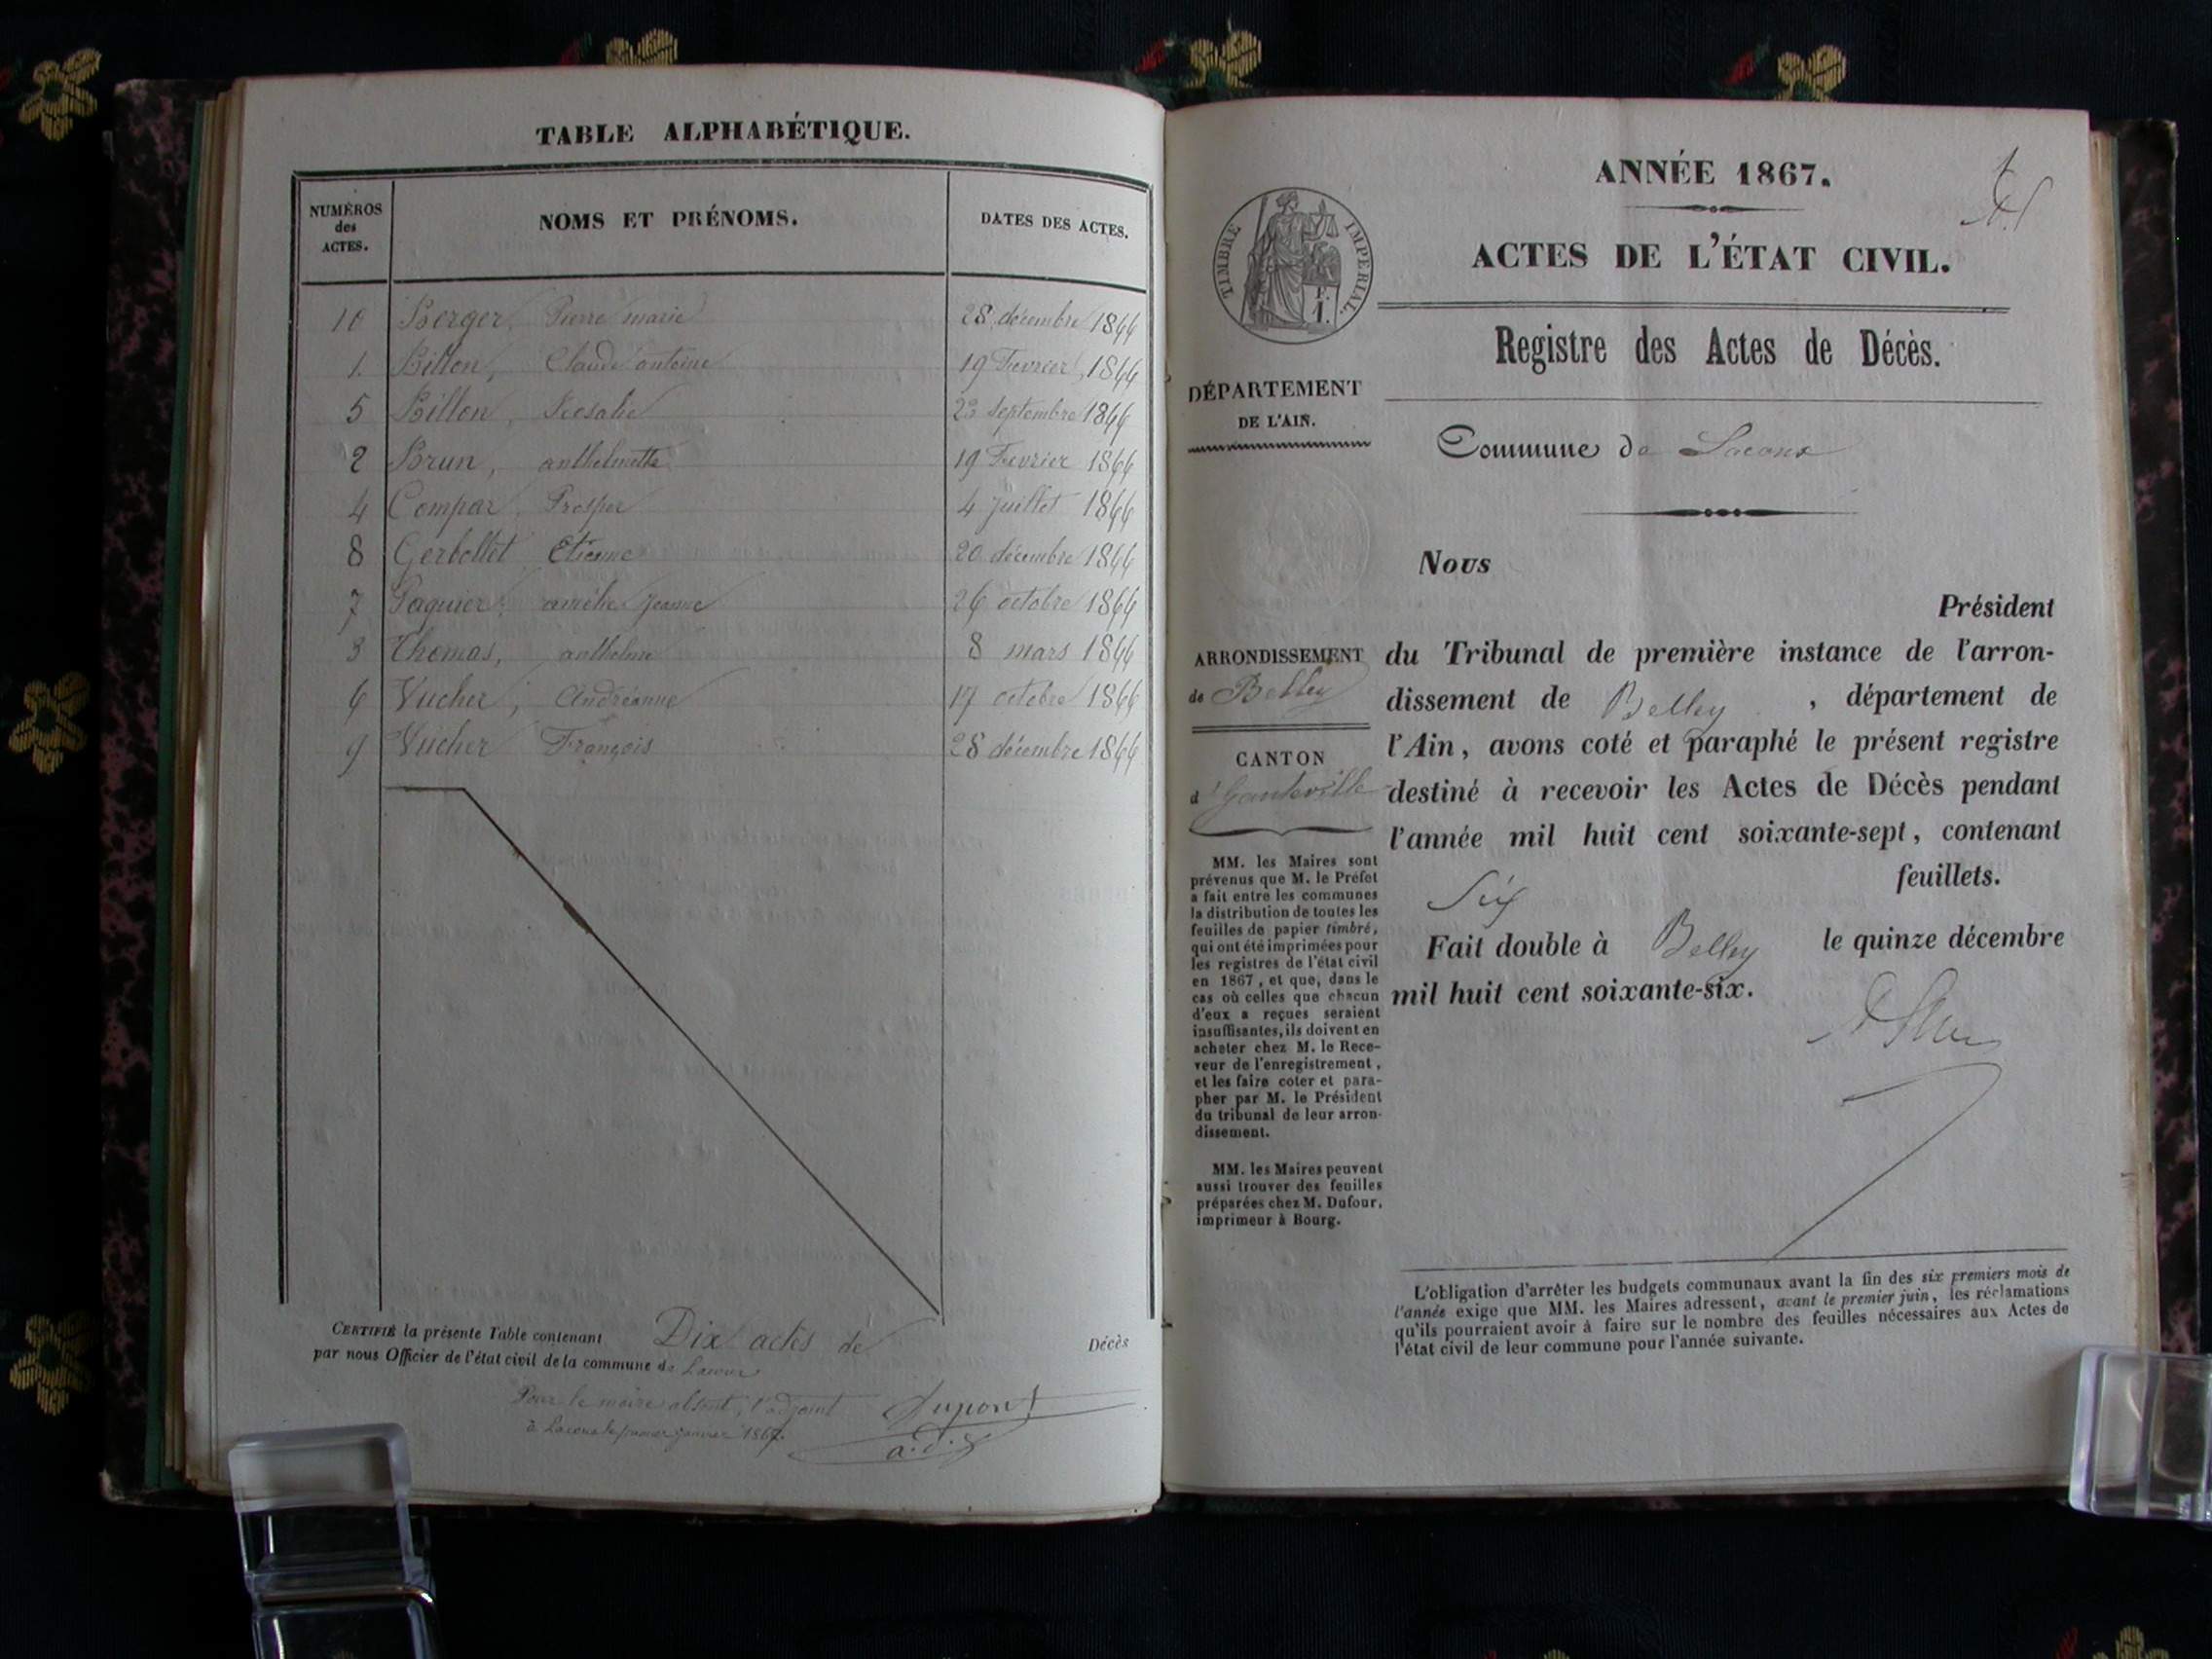 TABLE ALPHABÉTIQUE.
NUMÉROS des ACTES.
NOMS ET PRÉNOMS.
DATES DES ACTES.
10 Berger, Pierre marie 28 décembre 1866
1. Billon, Claude antoine 19 Fevrier 1866
5 Billon, Rosalie 23 septembre 1866
2 Brun, anthelmette 19 Fevrier 1866
4 Compar Prosper 4 juillet 1866
8 Gerbollet Etienne 20 décembre 1866
7 Paquier amélie Jeanne 26 octobre 1866
3 Thomas, anthelme 8 mars 1866
6 Vucher, Andréanne 17 octobre 1866
9 Vucher François 28 décembre 1866
CERTIFIÉ la présente Table contenant Dix actes de Décès
par nous Officier de l'état civil de la commune de Lacoux
Pour le maire absent, l'adjoint Dupont
à Lacoux le premier janvier 1867. a.d.j.
ANNÉE 1867.
ACTES DE L'ÉTAT CIVIL.
TIMBRE IMPÉRIAL.
F.
1.
Registre des Actes de Décès.
DÉPARTEMENT
DE L'AIN.
Commune de Lacoux
ARRONDISSEMENT
de Belley
CANTON
d'hauteville
MM. les Maires sont
prévenus que M. le Préfet
a fait entre les communes
la distribution de toutes les
feuilles de papier timbré,
qui ont été imprimées pour
les registres de l'état civil
en 1867, et que, dans le
cas où celles que chacun
d'eux a reçues seraient
insuffisantes, ils doivent en
acheter chez M. le Rece-
veur de l'enregistrement,
et les faire coter et para-
pher par M. le Président
du tribunal de leur arron-
dissement.
MM. les Maires peuvent
aussi trouver des feuilles
préparées chez M. Dufour,
imprimeur à Bourg.
Nous
Président
du Tribunal de première instance de l'arron-
dissement de Belley, département de
l'Ain, avons coté et paraphé le présent registre
destiné à recevoir les Actes de Décès pendant
l'année mil huit cent soixante-sept, contenant
Six feuillets.
Fait double à Belley le quinze décembre
mil huit cent soixante-six.
L'obligation d'arrêter les budgets communaux avant la fin des six premiers mois de
l'année exige que MM. les Maires adressent, avant le premier juin, les réclamations
qu'ils pourraient avoir à faire sur le nombre des feuilles nécessaires aux Actes de
l'état civil de leur commune pour l'année suivante.